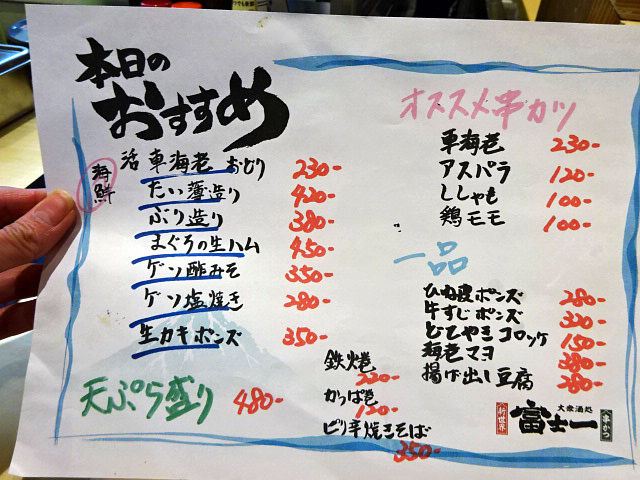 本日の
おすすめ
海鮮
活車海老おどり 230-
たい薄造り 420-
ぶり造り 380-
まぐろの生ハム 450-
ゲソ酢みそ 350-
ゲソ塩焼き 280-
生カキポンズ 350-
天ぷら盛り 480-
オススメ串カツ
車海老 230-
アスパラ 120-
ししゃも 100-
鶏モモ 100-
一品
ひね皮ポンズ 280-
牛すじポンズ 320-
どてやきコロッケ 150-
海老マヨ 380-
揚げ出し豆腐 280-
鉄火巻
220-
かっぱ巻
120-
ピリ辛焼きそば
350-
新世界
大衆酒処
富士一
串かつ